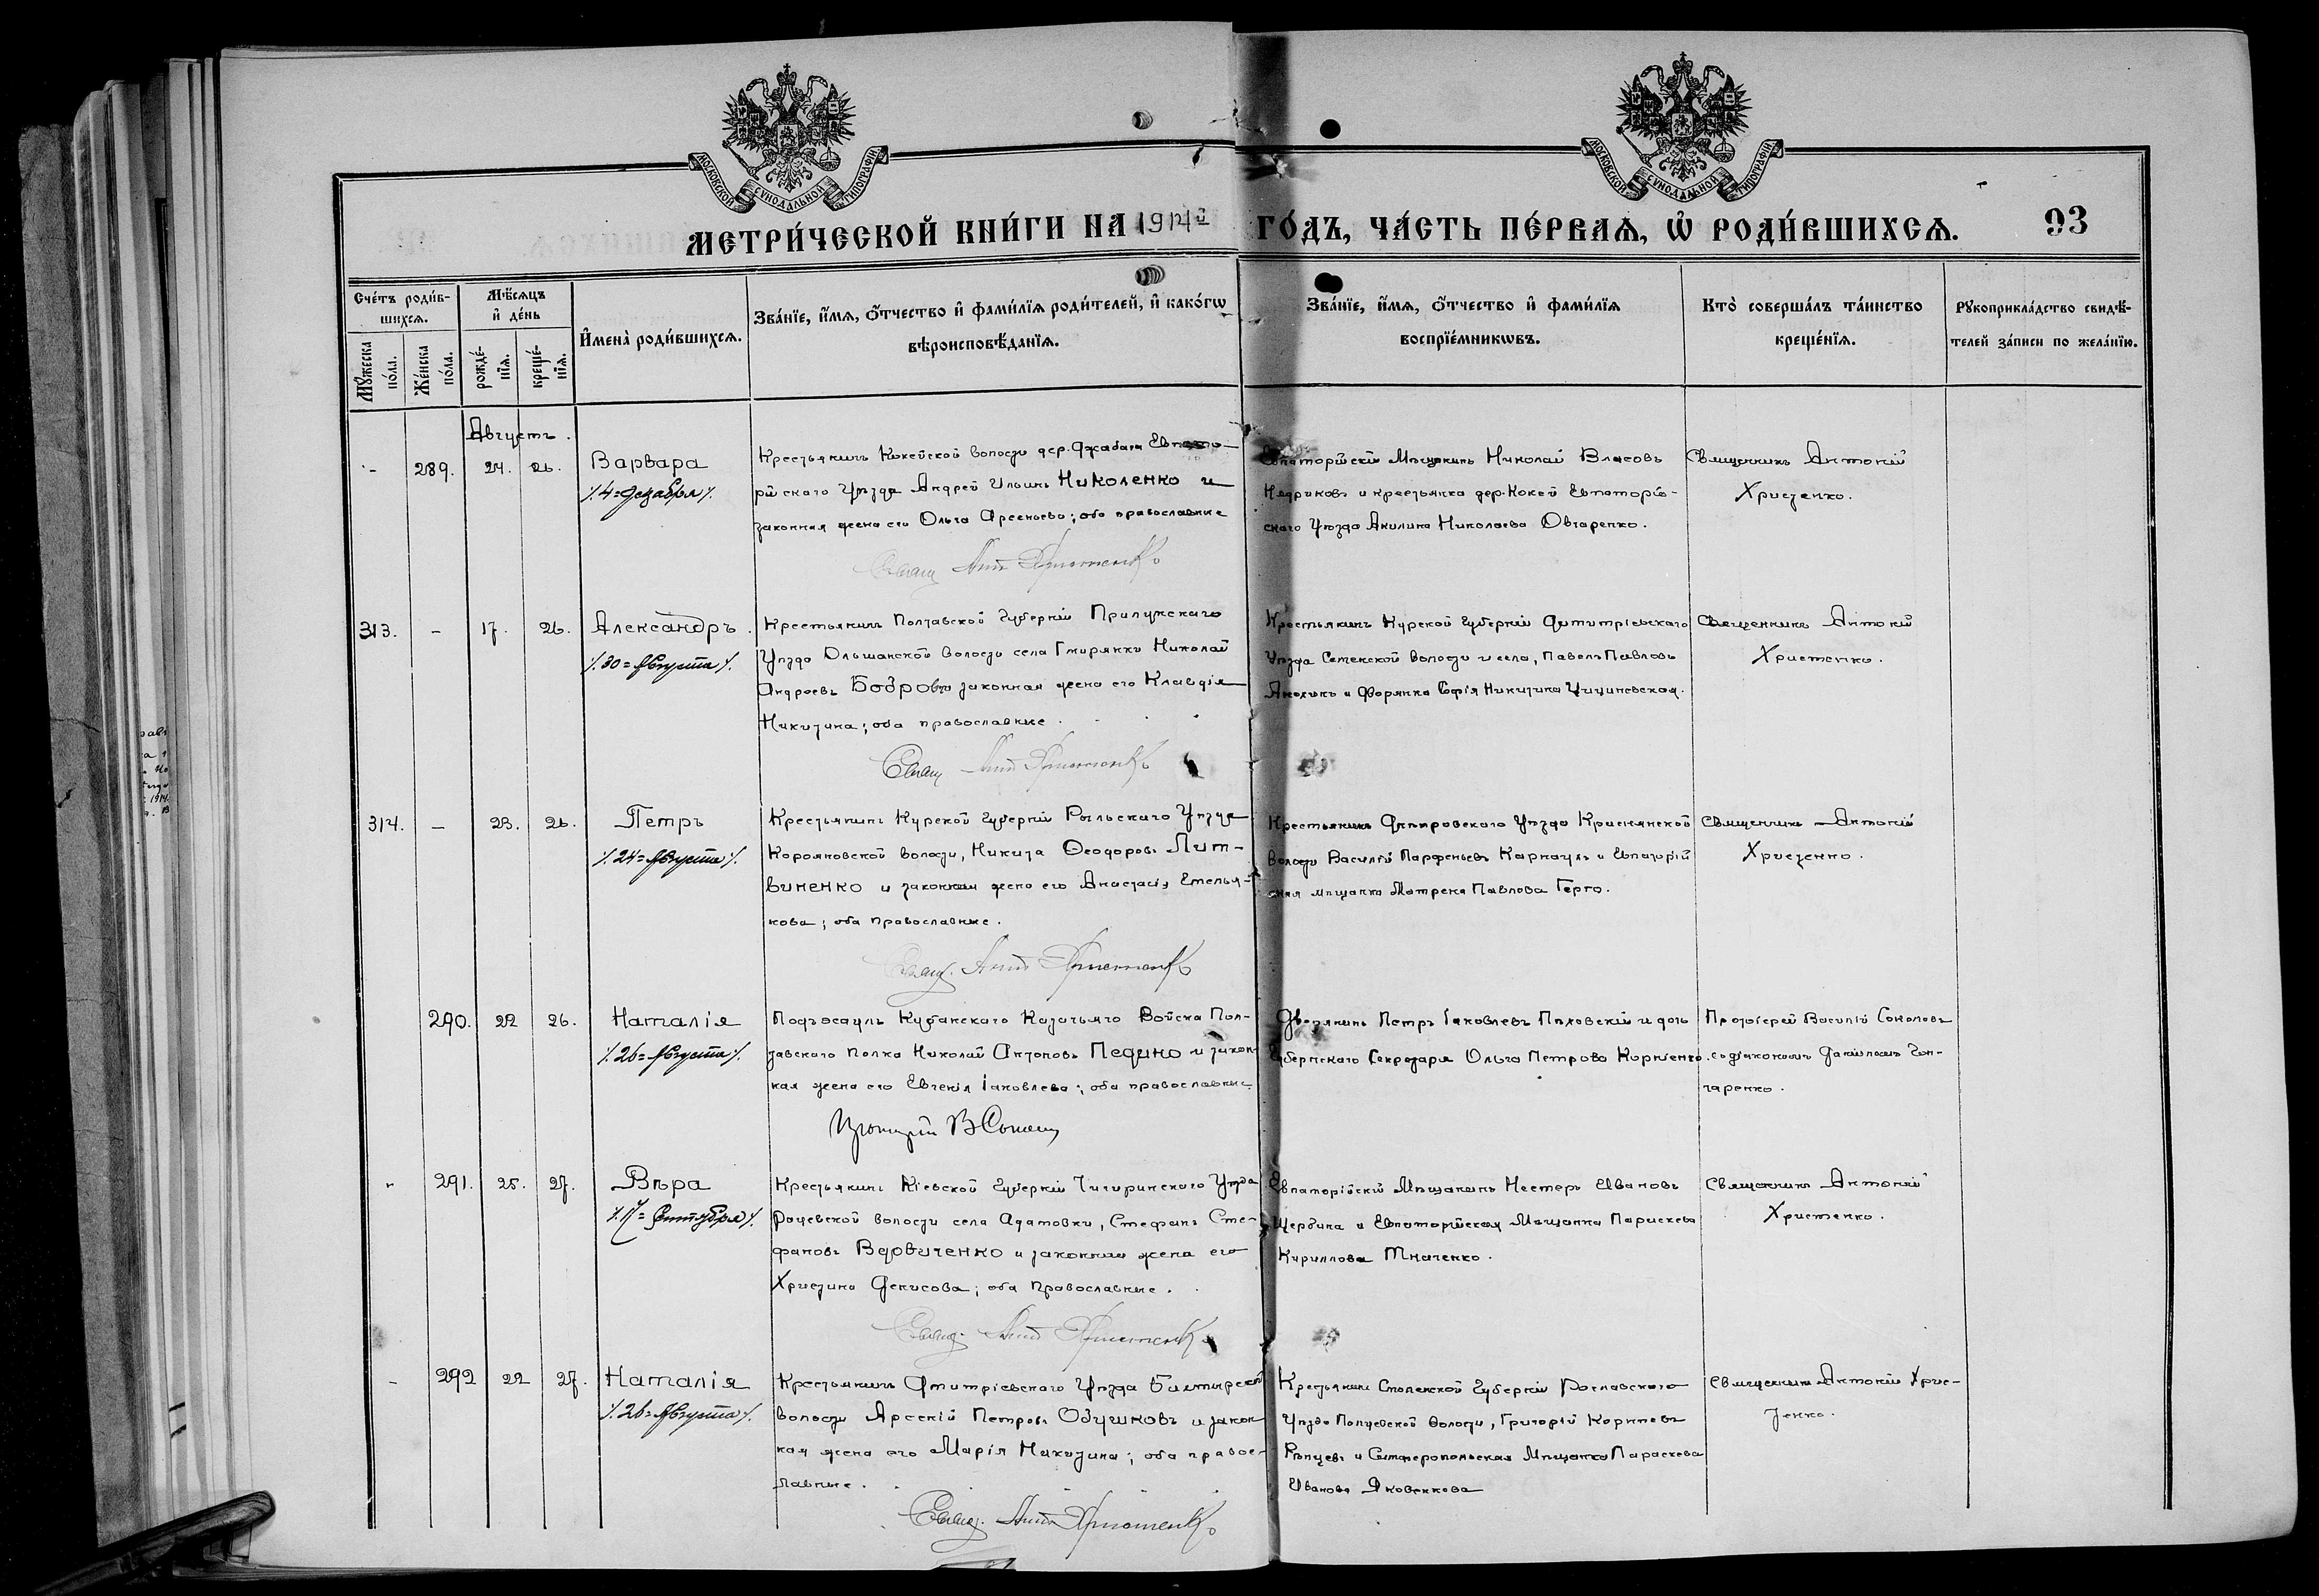 МОСКОВСКОЙ СУНОДАЛЬНОЙ ТИПОГРАФІИ
МОСКОВСКОЙ СУНОДАЛЬНОЙ ТИПОГРАФІИ
МЕТРИ́ЧЕСКОЙ КНИ́ГИ НА 1914й ГО́ДЪ, ЧА́СТЬ ПЕ́РВАѦ, Ѡ҆ РОДИ́ВШИХСѦ. 93
Счéтъ роди́в-
шихсѧ.
Мꙋ́жеска
по́ла.
Же́нска
по́ла.
Мѣ́сѧцъ
и҆ де́нь
рожде́-
нїѧ.
креще́-
нїѧ.
И҆мена̀ роди́вшихсѧ.
Зва́нїе, и҆́мѧ, ѻ҆́тчество и҆ фами́лїѧ роди́телей, и҆ како́гѡ
вѣроисповѣ́данїѧ.
Зва́нїе, и҆́мѧ, ѻ҆́тчество и҆ фами́лїѧ
воспрїе́мникѡвъ.
Кто̀ соверша́лъ та́инство
креще́нїѧ.
Рꙋкоприкла́дство свидѣ́-
телей за́писи по жела́нїю.
Августъ.
- 289. 24. 26.
Варвара
/. 4 = декабря /.
Крестьянинъ Кокейской волости дер. Джабага Евпато-
рійскаго Уѣзда Андрей Ильинъ Николенко и
законная жена его Ольга Арсеньева; оба православные
Свящ Ант Христенко
Евпаторійскій Мѣщанинъ Николай Власовъ
и крестьянка дер. Кокей Евпаторій-
скаго Уѣзда Акилина Николаева Овчаренко.
Священникъ Антоній
Христенко.
313. - 17. 26.
Александръ.
/. 30 = Августа /.
Крестьянинъ Полтавской Губерніи Прилукскаго
Уѣзда Ольшанской волости села Гнирянки Николай
Андреевъ Бодро законная жена его Клавдія
Никитина; оба православные.
Свящ Ант Христенко
Крестьянинъ Курской Губерніи Димитріевскаго
Уѣзда волости и села, Павелъ Павловъ
и Дворянка Софія Никитина
Священникъ Антоній
Христенко.
314. - 23. 26.
Петръ
/. 24 = Августа /.
Крестьянинъ Курской Губерніи Рыльскаго Уѣзда
волости, Никита Феодоровъ Лит-
виненко и законная жена его Анастасія Емелья-
нова; оба православные.
Свящ. Ант Христенко
Крестьянинъ Уѣзда
волости Василій Парфеньевъ Карнаухъ и Евпаторій
ская мѣщанка Матрена Павлова Герго.
Священникъ Антоній
Христенко.
290. 22 26.
Наталія
/. 26 = Августа /.
Подъесаулъ Кубанскаго Казачьяго Войска Пол-
тавскаго полка Николай Антоновъ Педино и закон-
ная жена его Евгенія Іаковлева; оба православные
Протоіерей В Соколовъ
Дворянинъ Петръ Іаковлевъ Пиховскій и дочь
Губернскаго Секретаря Ольга Петрова Корніенко.
Протоіерей Василій Соколовъ
съ діакономъ Даніиломъ Гон-
чаренко.
" 291. 25. 27.
Вѣра
/. 17 = Сентября /.
Крестьянинъ Кіевской Губерніи Чигиринскаго Уѣзда
Рацевской волости села Адамовки, Стефанъ Сте-
фановъ Вдовиченко и законная жена его
Христина Денисова; оба православные.
Свящ. Ант Христенко
Евпаторійскій Мѣщанинъ Несторъ Ивановъ
Щербина и Евпаторійская Мѣщанка Парискева
Кириллова Ткаченко.
Священникъ Антоній
Христенко.
- 292 22 27.
Наталія
/. 26 = Августа /.
Крестьянинъ Димитріевскаго Уѣзда
волости Арсеній Петровъ Обушковъ и закон
ная жена его Марія Никитина; оба правос-
лавные.
Свящ. Ант Христенко
Крестьянинъ Смоленской Губерніи Рославскаго
Уѣзда волости, Григорій Корнеевъ
и Симферопольская Мѣщанка Параскева
Иванова Яковенкова
Священникъ Антоній Хрис-
тенко.